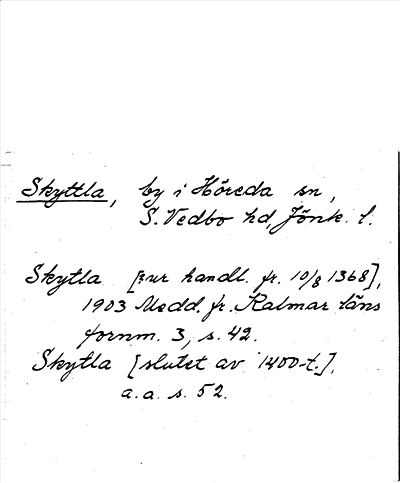 Skyttla, by i Höreda sn,
S. Vedbo hd, Jönk. l.
Skytla [ur handl. fr. 10/8 1368],
1903 Medd. fr. Kalmar läns
fornm. 3, s. 42.
Skytla [slutet av 1400-t.],
a.a. s. 52.